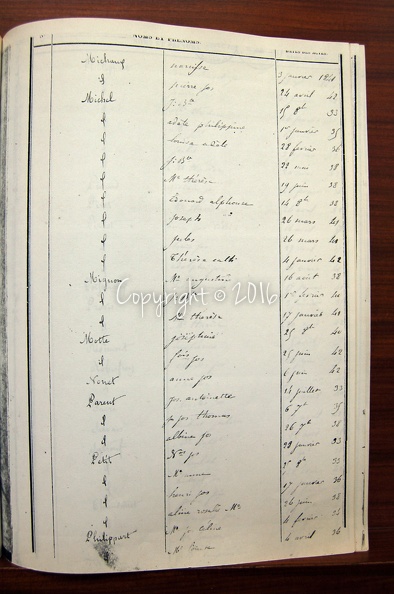 NOMS ET PRÉNOMS. DATES DES ACTES.
Michaux 3 janvier 1841
d pierre jos 24 avril 42
Michel J. Bte 15 8bre 33
d adèle philippine 1er janvier 35
d adèle 28 février 36
d J. Bte 22 mai 38
d Mie thérèse 19 juin 38
d Édouard alphonse 14 8bre 38
d joseph 26 mars 41
d jules 26 mars 41
d Thérèse 4 janvier 42
Mignon Mie augustine 16 août 38
d 1er février 40
d Mie thérèse 17 janvier 41
Motte joséphine 25 8bre 40
d jos 25 juin 42
Noiret anne jos 6 juin 42
Parent jos antoinette 24 juillet 33
d jos thomas 6 7bre 35
d albine jos 26 7bre 38
Petit Nas jos 28 janvier 33
d Mie 33
d henri jos 17 janvier 36
d aline rosalie Mie 26 juin 38
Philippart Mie jos Céline 4 février 34
Mie 6 avril 36
Copyright © 2016